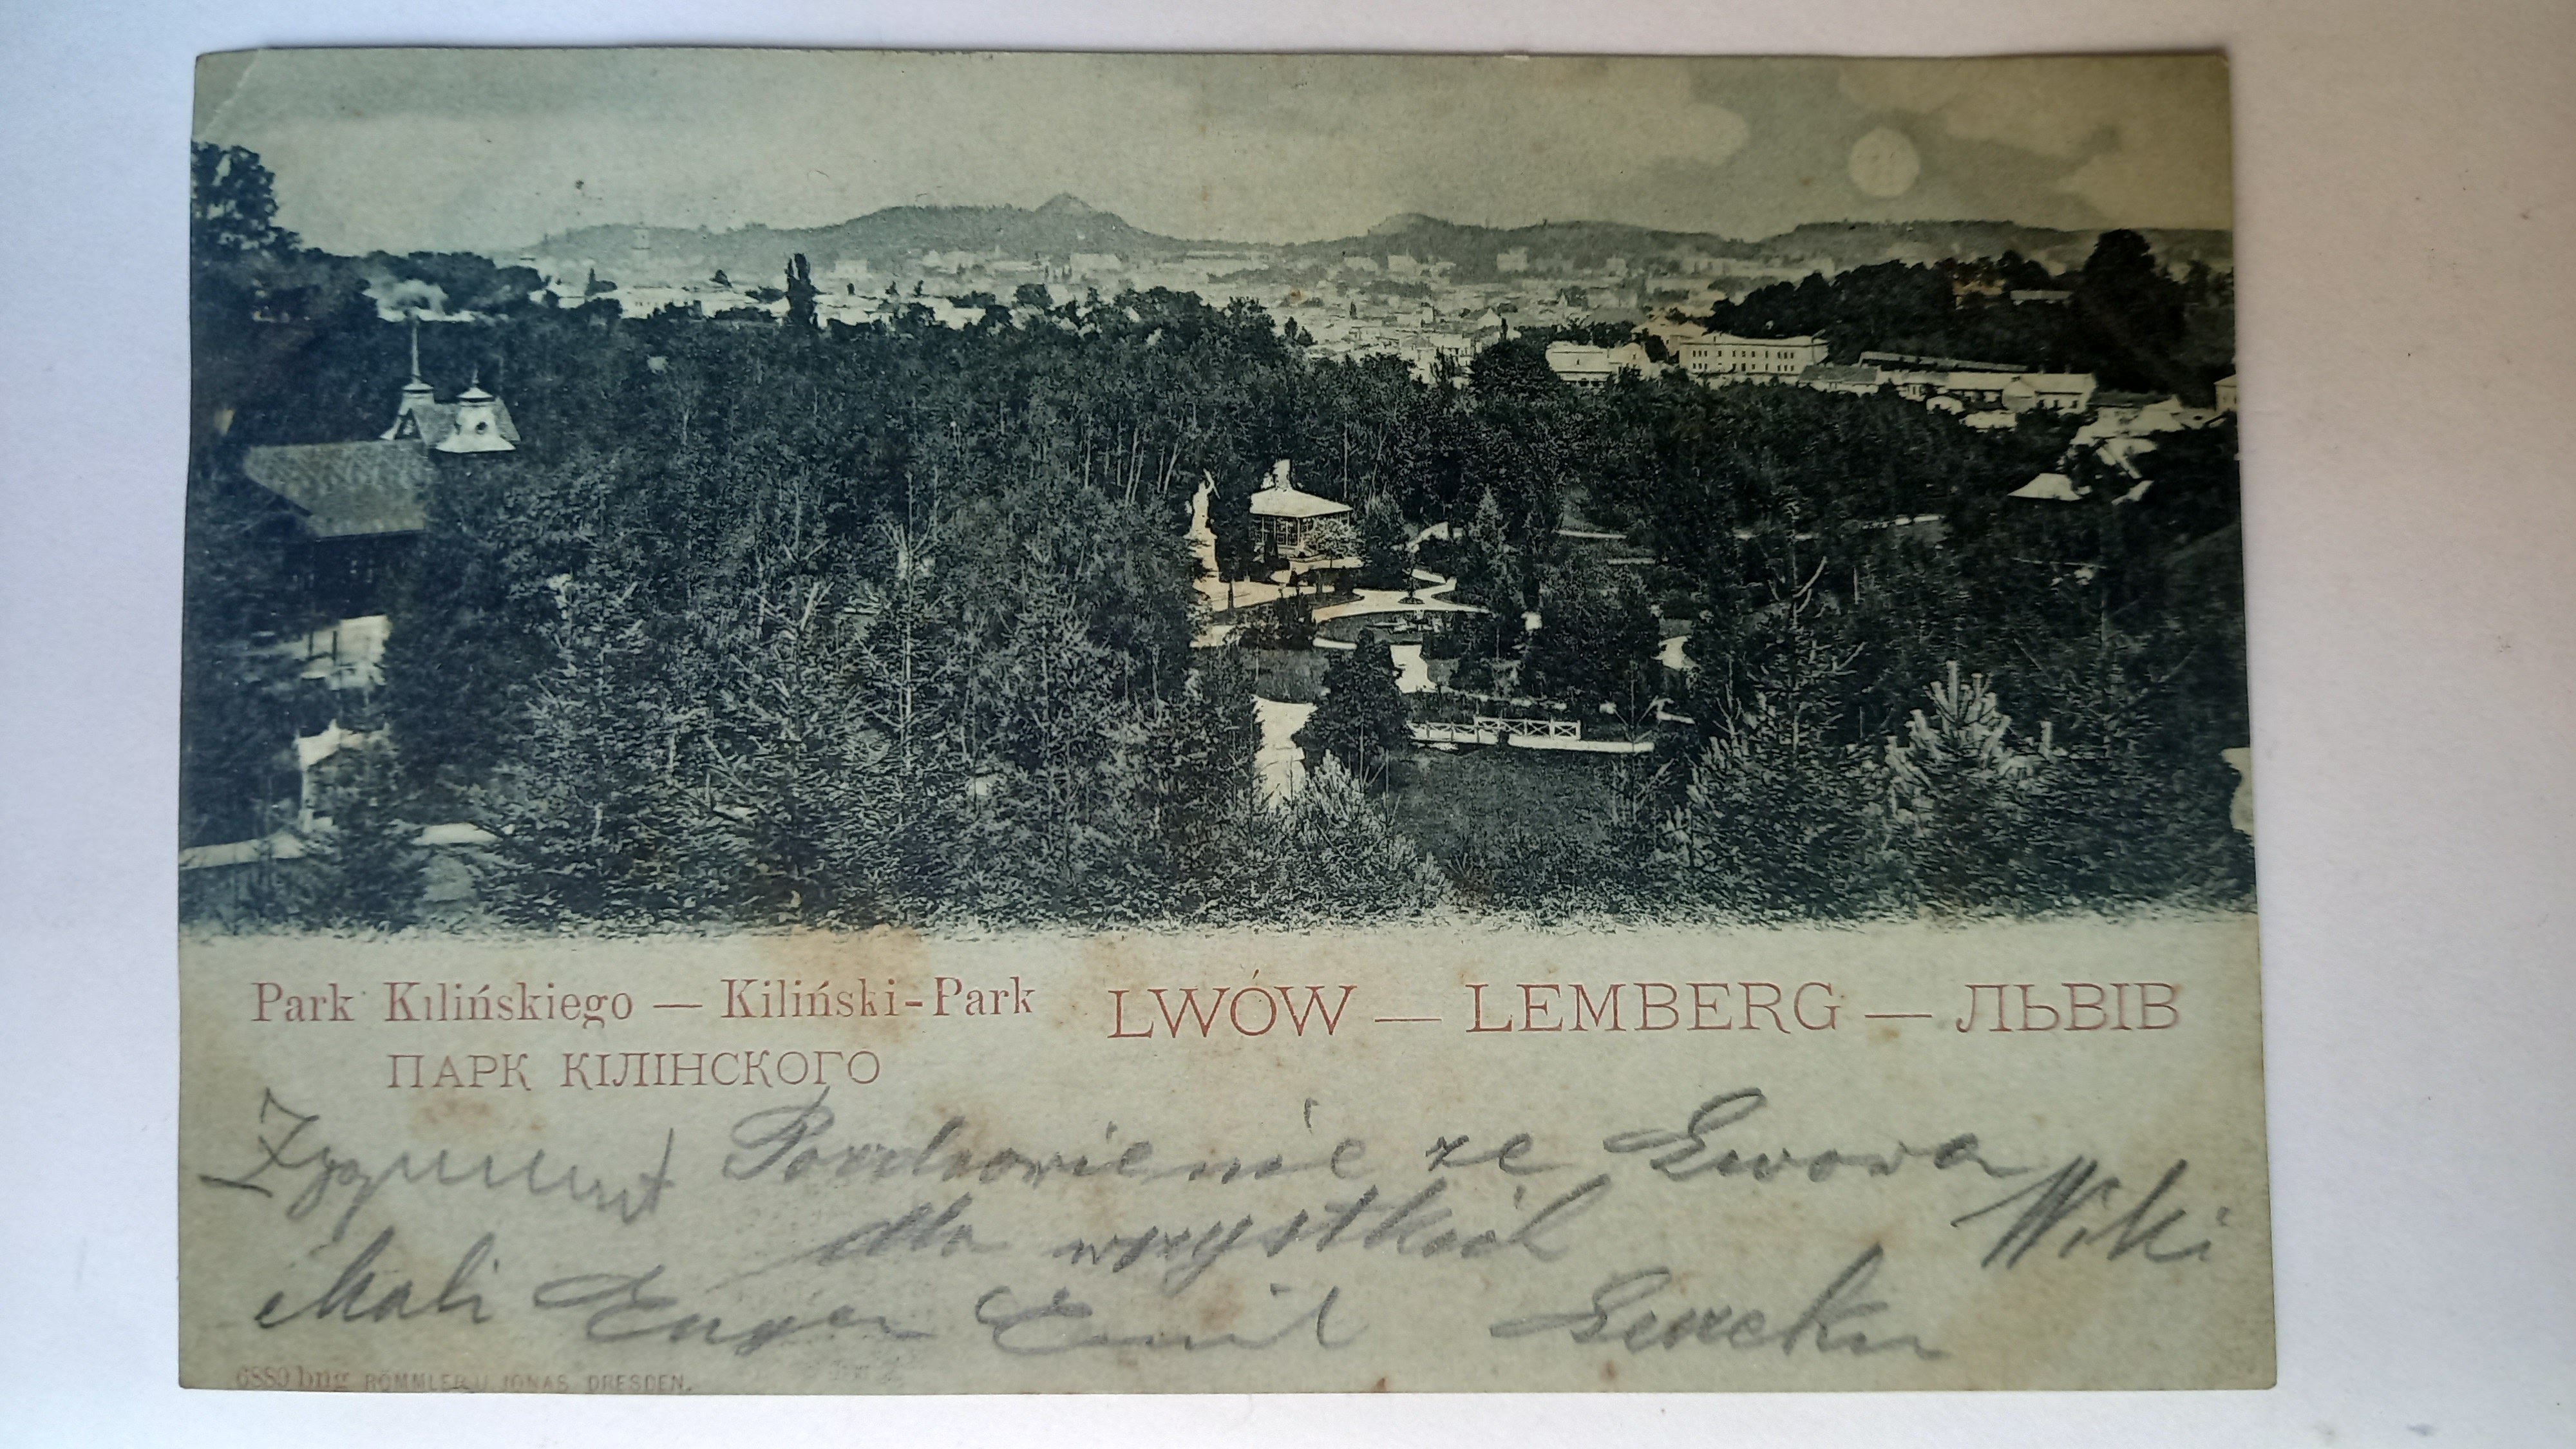 Park Kilińskiego — Kiliński-Park LWÓW — LEMBERG — ЛЬВІВ
ПАРК КІЛІНСКОГО
Zygmunt Pozdrowienie ze Lwowa
dla wszystkich Wiki
Mali Eugen Emil
6889 bng RÖMMLER U. JONAS, DRESDEN.